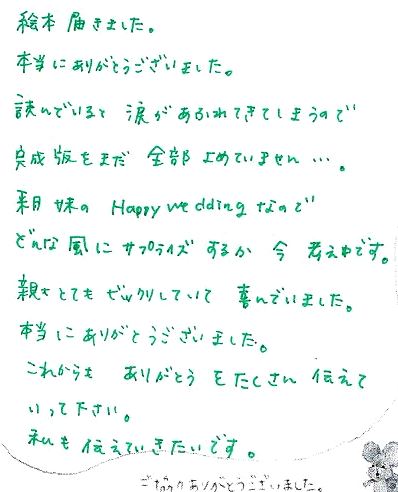 絵本 届きました。
本当にありがとうございました。
読んでいると 涙があふれてきてしまうので
完成版をまだ 全部 よめていません…。
来月 妹の Happy wedding なので
どんな風に サプライズ するか 今 考え中です。
親も とても ビックリしていて 喜んでいました。
本当に ありがとうございました。
これからも ありがとう をたくさん 伝えて
いって下さい。
私も 伝えていきたいです。
ご協力ありがとうございました。